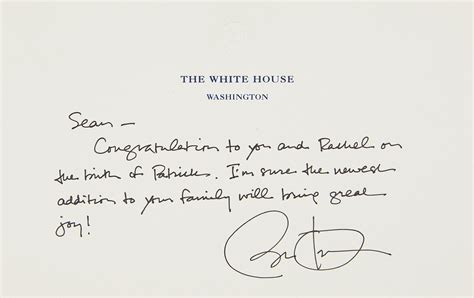 THE WHITE HOUSE
WASHINGTON
Sean —
Congratulation to you and Rachel on
the birth of Patrick. I'm sure the newest
addition to your family will bring great
joy!